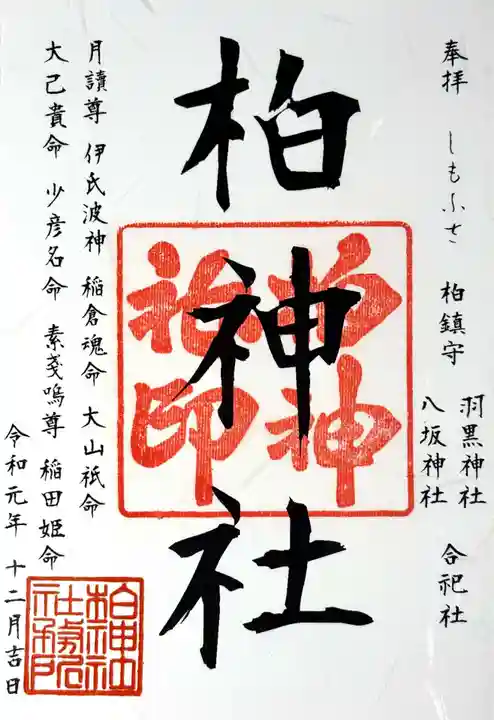 奉拝 しもふさ 柏鎮守 羽黒神社
八坂神社 合祀社
柏神社
柏神
社印
月讀尊 伊氐波神 稲倉魂命 大山祇命
大己貴命 少彦名命 素戔嗚尊 稲田姫命
令和元年 十二月吉日
柏神社
社務所